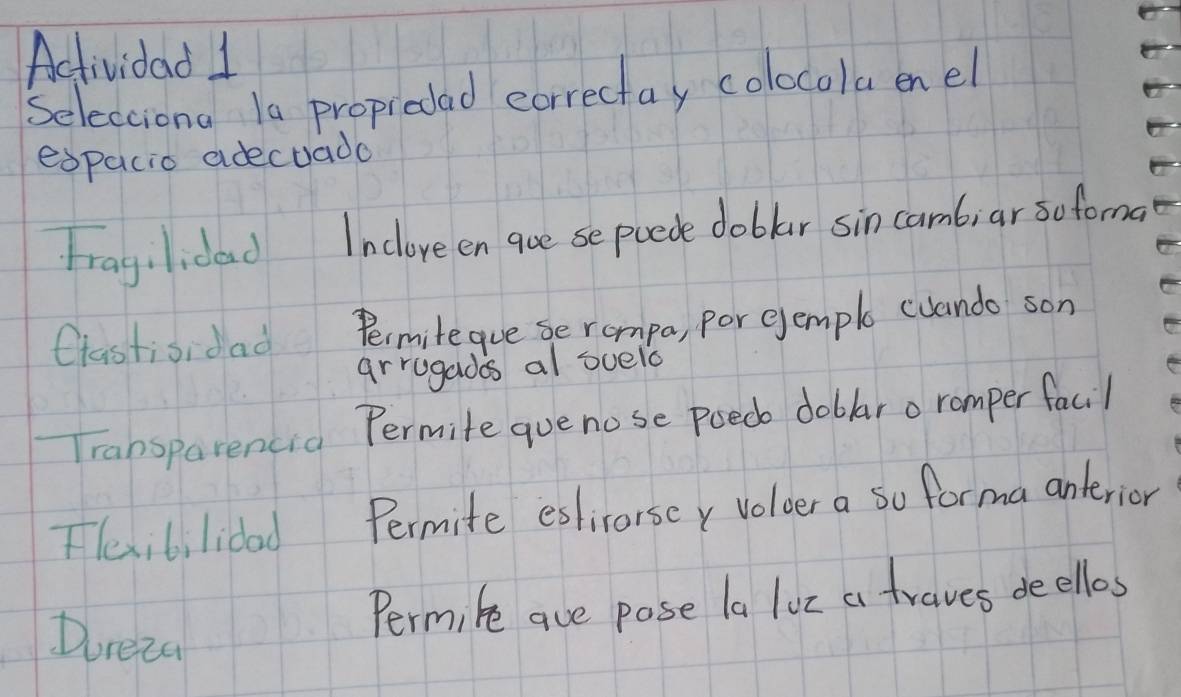 Actividad 1
Selecciona la propiedad correcta y colocala en el
espacio adecuado
Fragilidad Incluye en que se puede doblar sin cambiar su forma
Elastisidad Permite que se rompa, por ejemplo cuando son
arrugados al suelo
Transparencia Permite que no se puedo doblar o romper facil
Flexibilidad Permite estirarse y volver a su forma anterior
Dureza Permite que pase la luz a traves de ellos